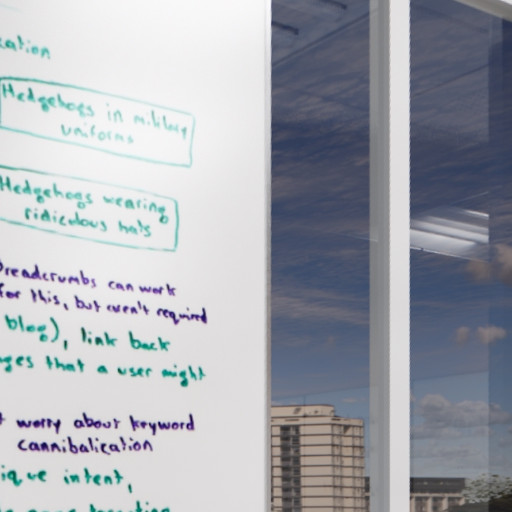 cation
Hedgehogs in military
uniforms
Hedgehogs wearing
ridiculous hats
Breadcrumbs can work
for this, but aren't required
blog), link back
ges that a user might
t worry about keyword
cannibalication
ique intent,